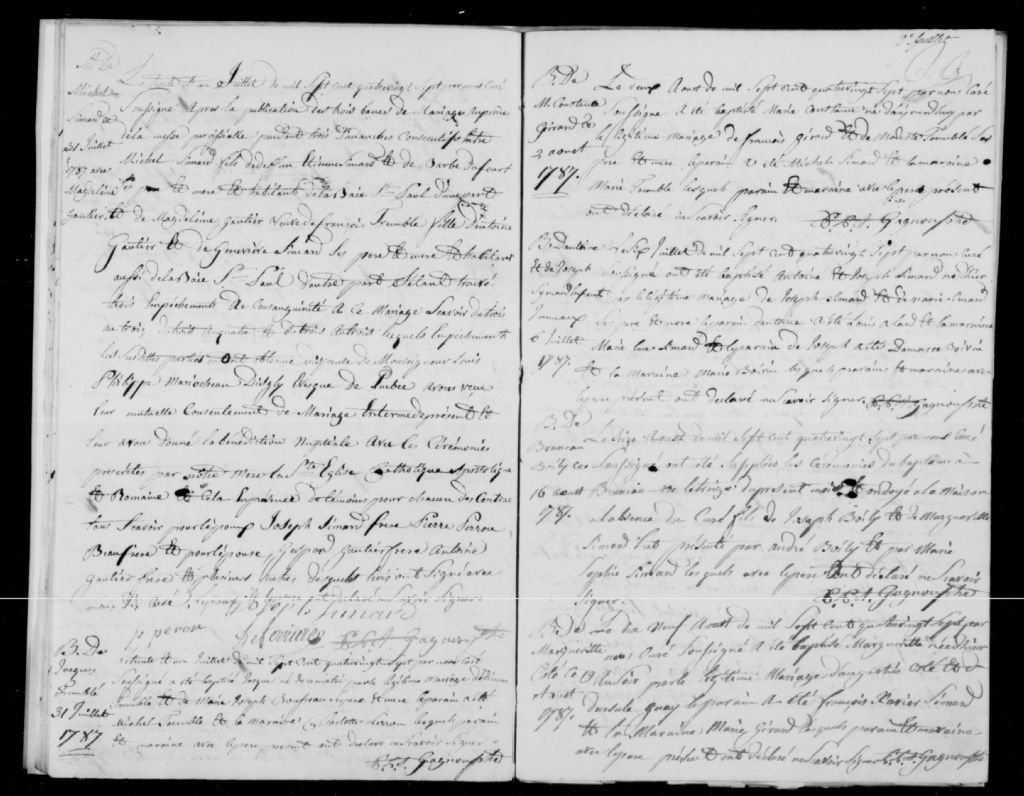 M. De
Michel
Simard ce
31 Juillet
1787 avec
Magdeléne
Gautier
Le trente et un Juillet de mil Sept cent quatrevingt Sept par nous Curé
Soussigné Apres la publication des trois bancs de Mariages au prône
de la messe paroissialle pendant trois Dimanches Consecutifs Entre
Michel Simard fils de deffun Etienne Simard Et de Barbe Dufourt
pere et mere Et habitants de la Baie St Paul D'une part
Et de Magdeléne Gautier Veuve de francois Tremble fille D'antoine
Gautier Et de Geneviève Simard Ses pere et mere Et habitant
aussi de la Baie St Paul D'autre part S'etant trouvé
trois Empêchements de Consanguinité A Ce Mariage Scavoir du trois
au trois, du trois au quatre Et du trois Au trois lesquels Empêchements
les Susdittes parties ont obtenu dispense de Monseigneur Louis
Philippe Mariocheau Desgly Evêque de Québec avons reçu
leur mutuelle Consentement de Mariage Et
leur avons donné la bénédiction Nuptiale Avec les Cérémonies
prescrites par notre Mere la Ste Eglise Catholique Apostolique
Et Romaine Et Cela En présence de témoins pour chacun des Contrac
tans Scavoir pour l'epoux Joseph Simard frere Pierre Perron
Beaufrere Et pour l'épouse, Gaspard Gautier frere Antoine
Gautier frere Et plusieurs autres desquels trois ont Signés avec
nous Et déclaré ne Scavoir Signer.
Joseph Simard
p. peron Lefevures P.P.A. Gagnon ptre
B. De
Jacques
Tremblé
31 Juillet
1787
Le trente et un Juillet de mil Sept cent quatrevingt Sept par nous Curé
Soussigné a été baptisé Jacque né du matin par le légitime mariage d'Etienne
Tremblé Et de Marie Joseph Bonneau Ses pere Et mere le parain a été
Michel Tremblé Et la maraine Charlotte Simon lesquels parain
Et maraine avec le pere présent ont declaré ne Scavoir Signer
P.P.A. Gagnon ptre
2e feuillet
B. De
M. Constante
Girard ce
2 aouet
1787.
Le deux Aoust de mil Sept cent quatrevingt Sept par nous Curé
Soussigné A été baptisée Marie Constance née d'aujourd'huy par
le légitime Mariage de francois Girard Et de Marie Tremblé Ses
pere et mere le parain a été Michel Simard Et la maraine
Marie Tremblé lesquels parain Et maraine avec le pere présent
ont déclaré ne Scavoir Signer.
P.P.A. Gagnon ptre
B. D'antoine
Et de Joseph
Simard Enfants
Jumeaux
6 Juillet
1787.
Le Six Juillet de mil Sept cent quatrevingt Sept par nous Curé
Soussigné ont été baptisé Antoine Et Joseph Simard nés hier
par le légitime Mariage de Joseph Simard Et de marie Simard
Ses pere Et mere le parain d'antoine a été Louis Alard Et la maraine
Marie Luce Simard Et le parain de Joseph a été Damasce Boivin
Et la Maraine Marie Boivin lesquels parains Et maraines avec
le pere présent ont déclaré ne Scavoir Signer. P.P.A. Gagnon ptre
B. De
Braneau
Boily ce
16 aoust
1787.
Le Seize Aoust de mil Sept cent quatrevingt Sept par nous Curé
Soussigné ont été Supplées les Cérémonies du baptême à
Braneau né le treize du present mois Et ondoyé a la Maison
a l'absence du Curé fils de Joseph Boily Et de Margueritte
Simard Fut présenté par André Boily Et par Marie
Sophie Simard lesquels avec le pere ont déclaré ne Scavoir
Signer. P.P.A. Gagnon ptre
B. De
Margueritte
Coté ce
19 aout
1787.
Le dix Neuf Aoust de mil Sept cent quatrevingt Sept par
nous Curé Soussigné A été baptisée Margueritte née d'hier
Au Soir par le légitime Mariage d'augustin Coté Et
D'ursule Guay le parain A été françois Xavier Simard
Et la Maraine Marie Girard lesquels parain Et maraine
avec le pere présent ont déclaré ne Scavoir Signer P.P.A. Gagnon ptre